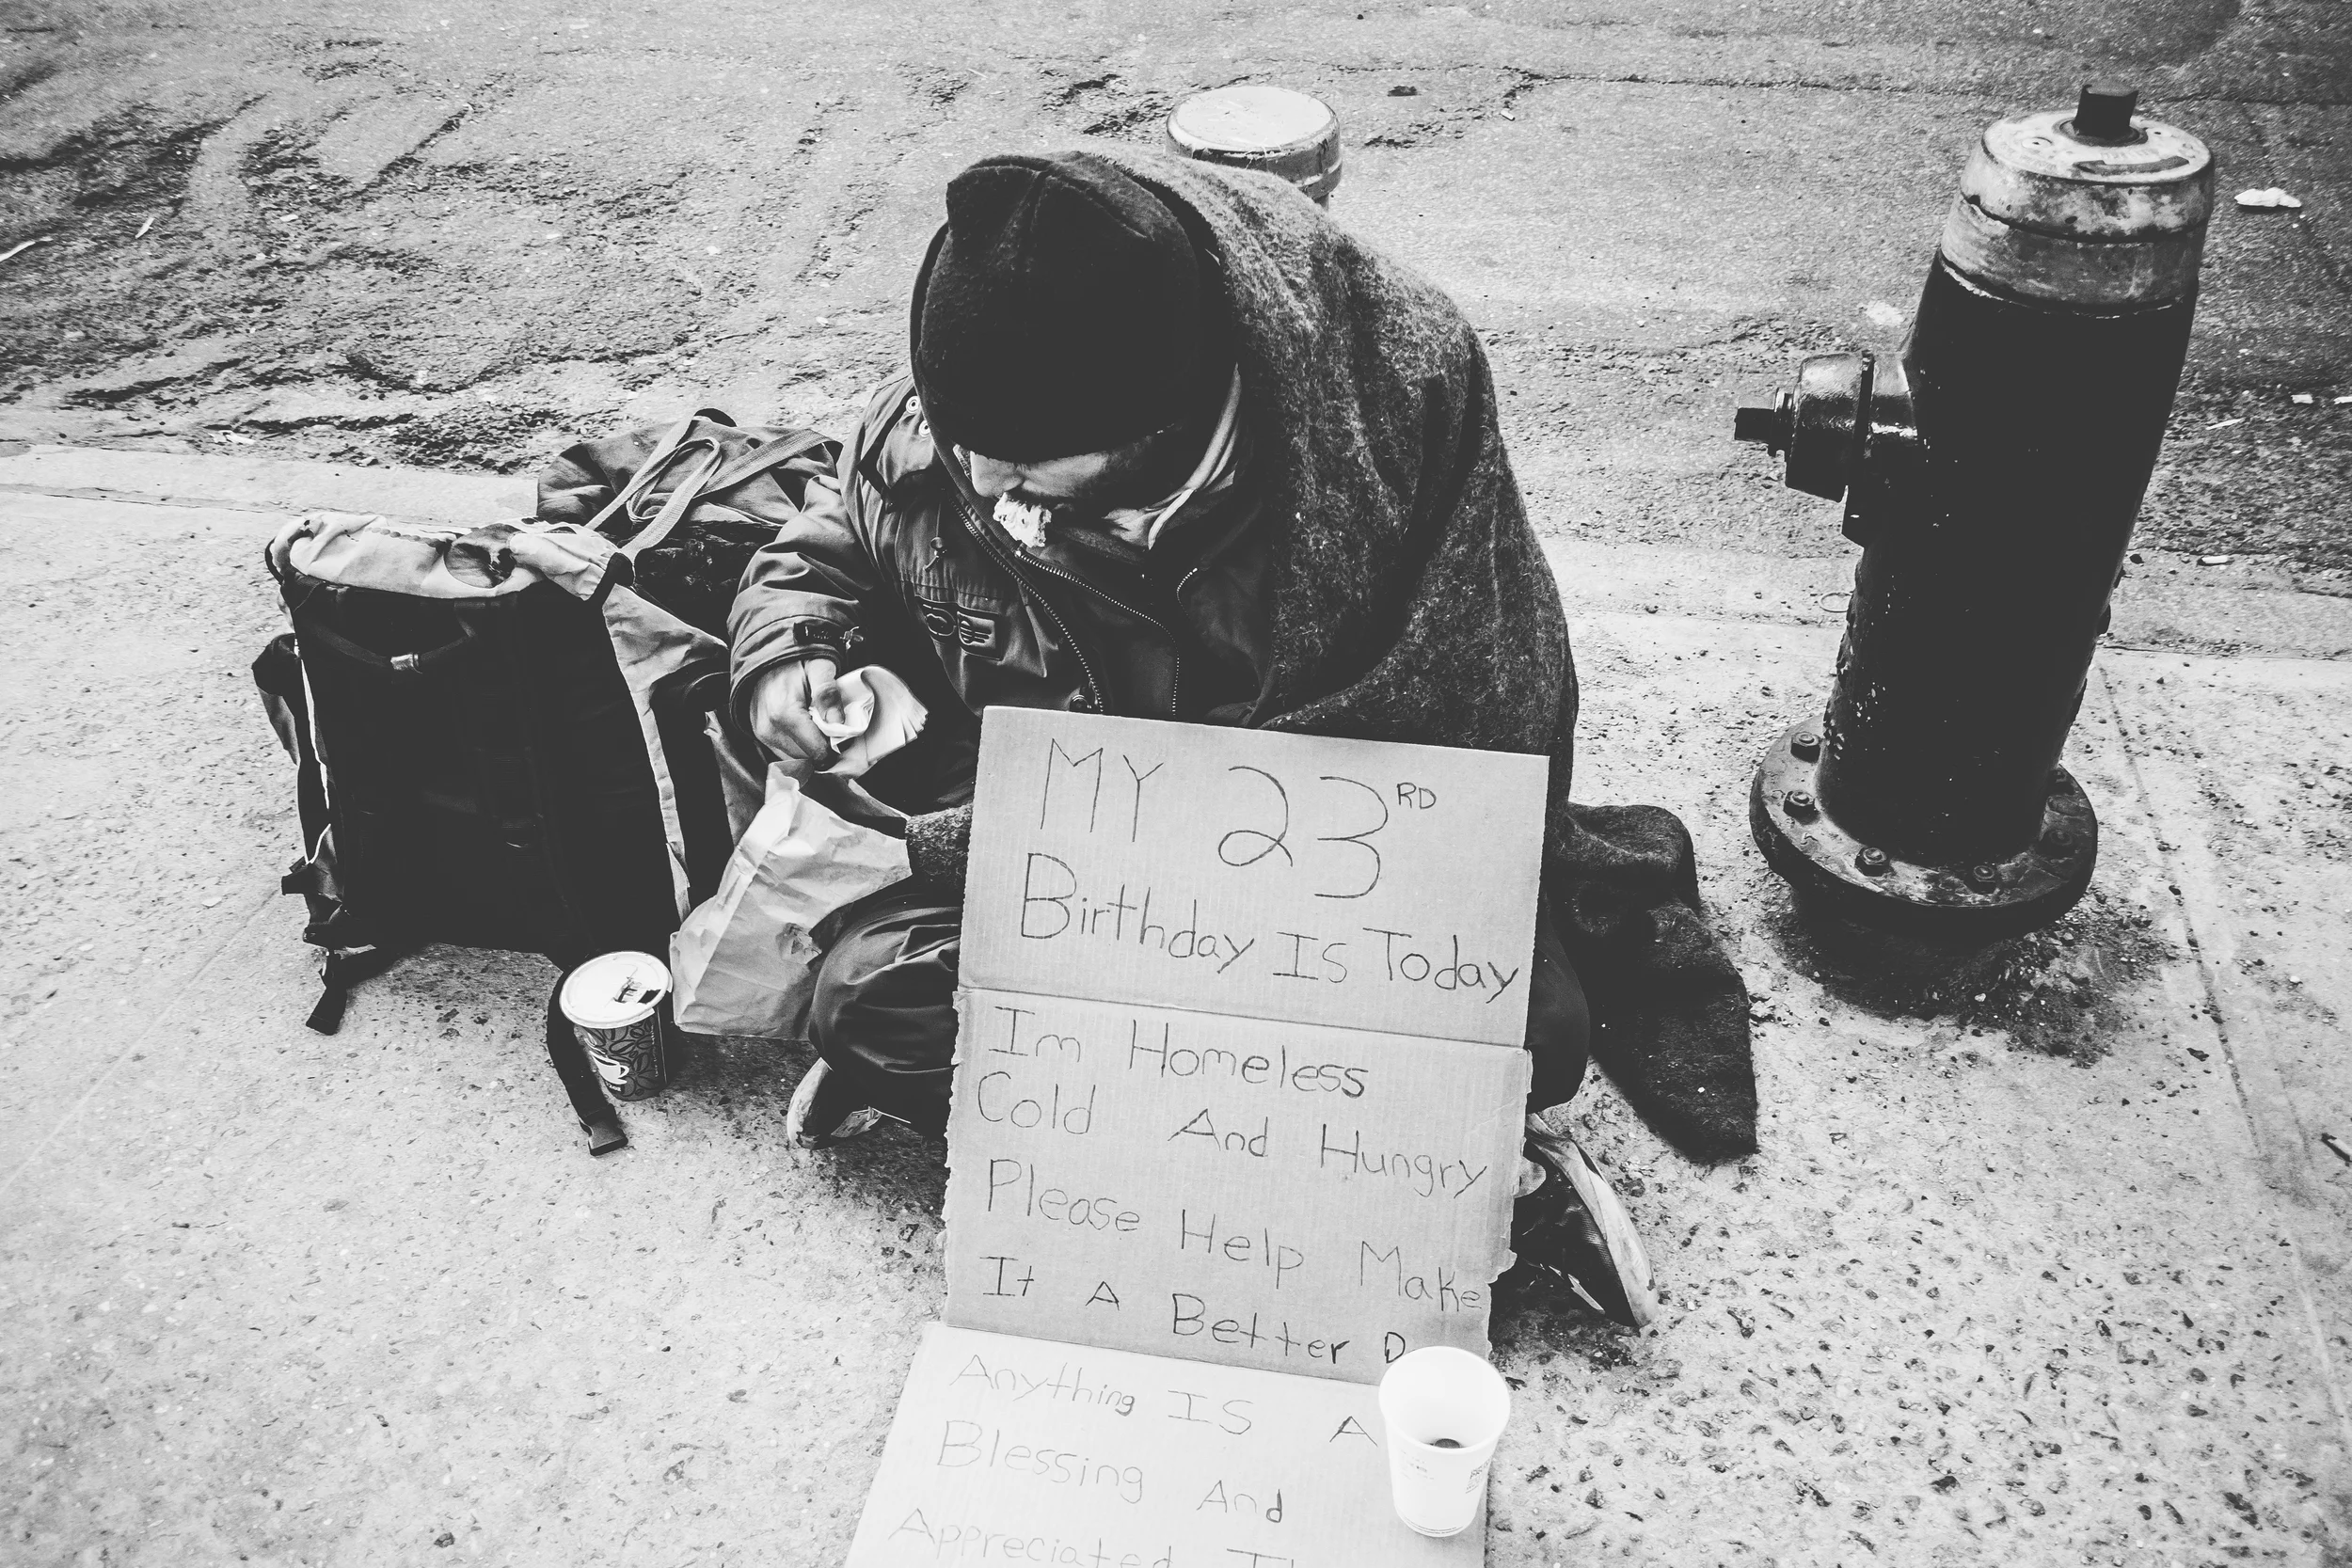 MY 23RD
Birthday Is Today
Im Homeless
Cold And Hungry
Please Help Make
It A Better D
Anything IS A
Blessing And
Appreciated